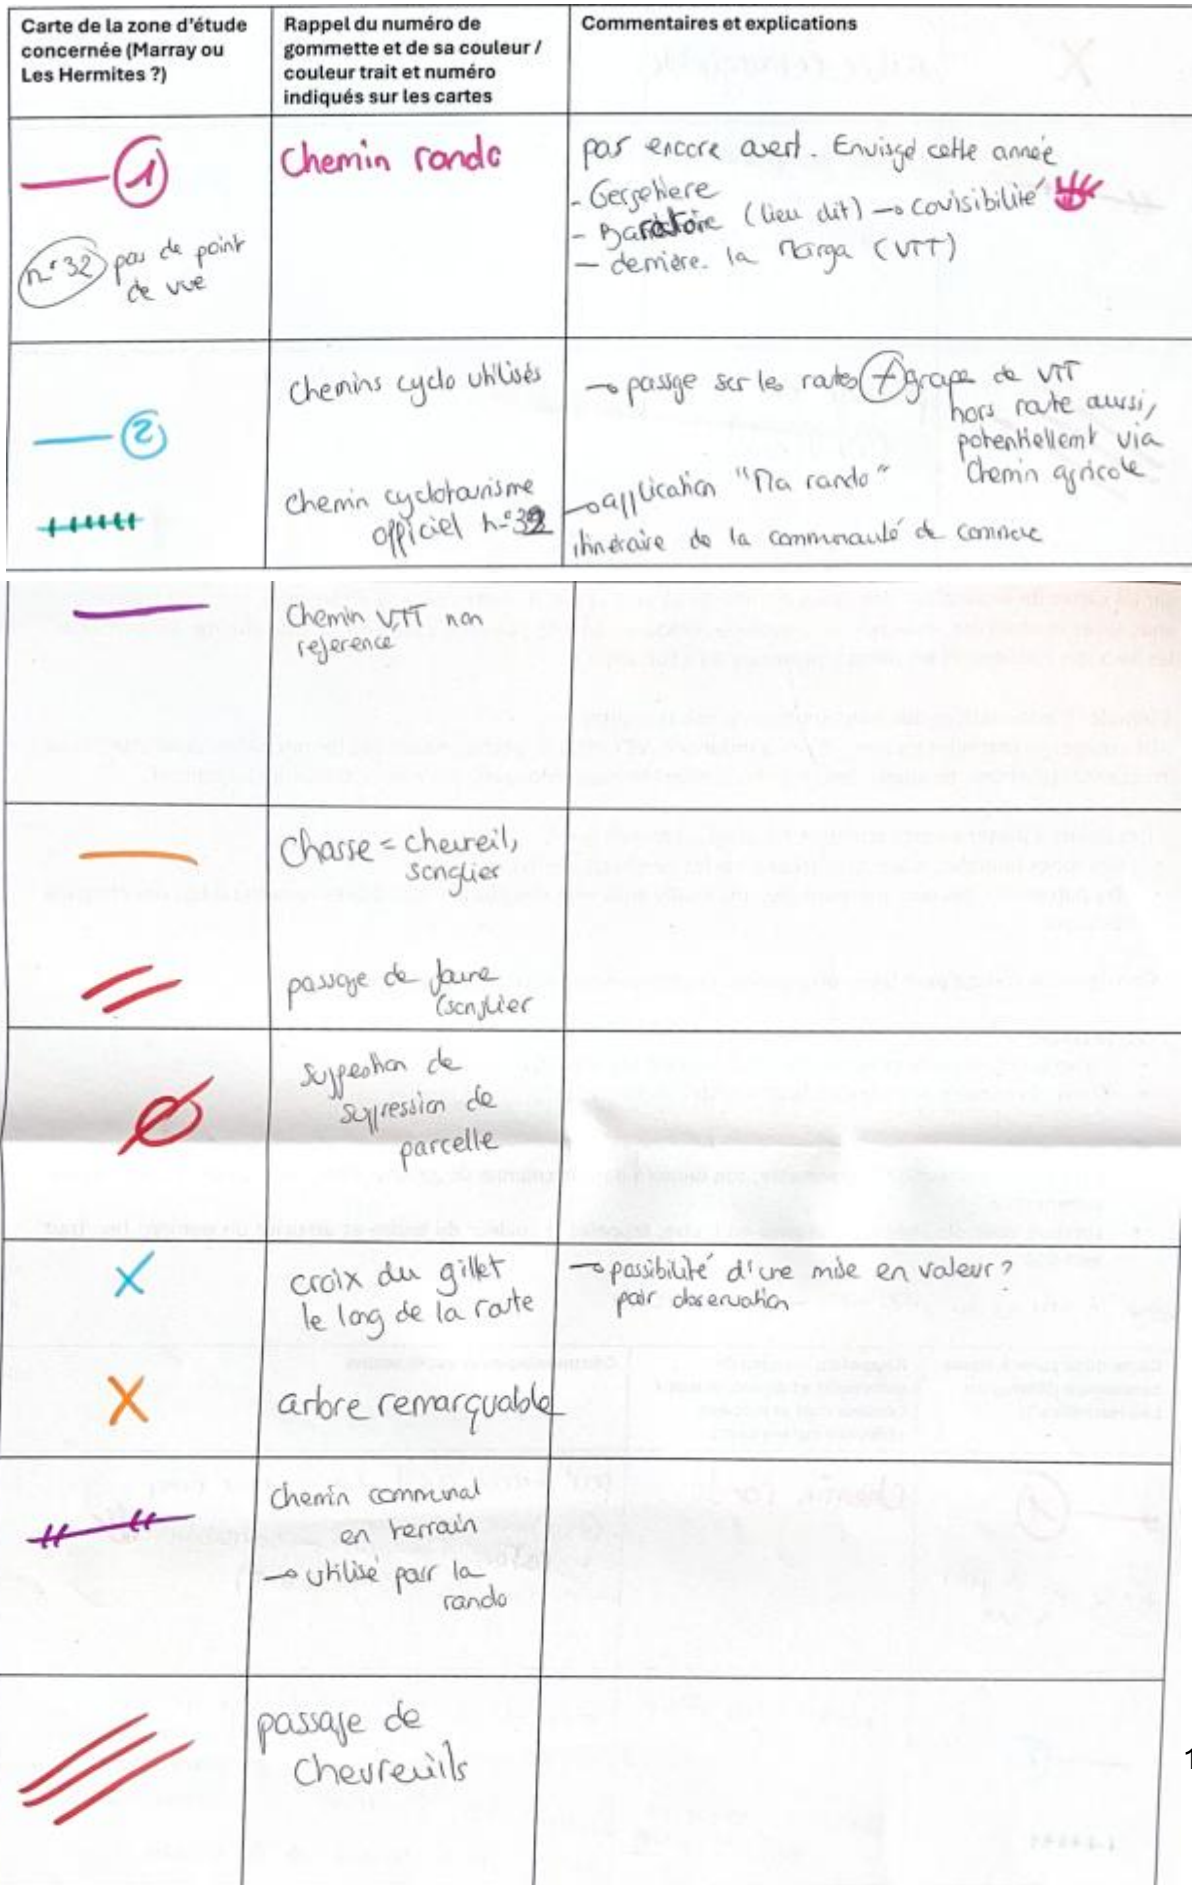 Carte de la zone d'étude
concernée (Marray ou
Les Hermites ?)
Rappel du numéro de
gommette et de sa couleur /
couleur trait et numéro
indiqués sur les cartes
Commentaires et explications
1
n°32 pas de point
de vue
Chemin rando
pas encore ouvert. Envisagé cette année
- 
- (lieu dit) → covisibilité
- derrière la (VTT)
2
Chemins cyclo utilisés
Chemin cyclotourisme
officiel n°32
→ passage sur les routes + groupe de VTT
hors route aussi,
potentiellement via
Chemin agricole
→ application "Ma rando"
itinéraire de la communauté de commune
Chemin VTT non
reference
Chasse = chevreil,
sanglier
passage de faune
(sanglier
suggestion de
suppression de
parcelle
croix du gillet
le long de la route
→ possibilité d'une mise en valeur?
pour observation
arbre remarquable
Chemin communal
en terrain
→ utilisé par la
rando
passage de
Chevreuils
1